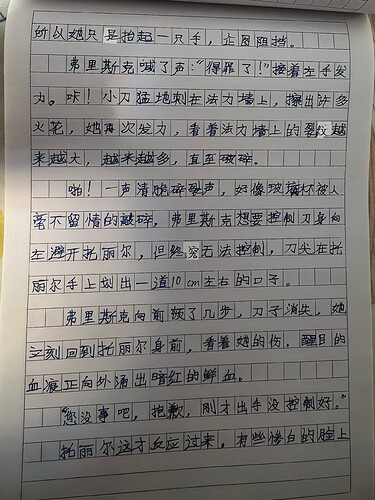 所以她只是抬起一只手，企图阻挡。
弗里斯克喊了声："得罪了！"接着左手发
力。咔！小刀猛地刺在法力墙上，擦出许多
火花，她再次发力，看着法力墙上的裂纹越
来越大，越来越多，直至破碎。
啪！一声清脆碎裂声，好像玻璃杯被人
毫不留情的敲碎，弗里斯克想要控制刀身向
左避开托丽尔，但终究无法控制，刀尖在托
丽尔手上划出一道10cm左右的口子。
弗里斯克向前倾了几步，刀子消失，她
立刻回到托丽尔身前，看着她的伤。醒目的
血痕正向外涌出暗红的鲜血。
"您没事吧，抱歉，刚才出手没控制好。"
托丽尔这才反应过来，有些苍白的脸上